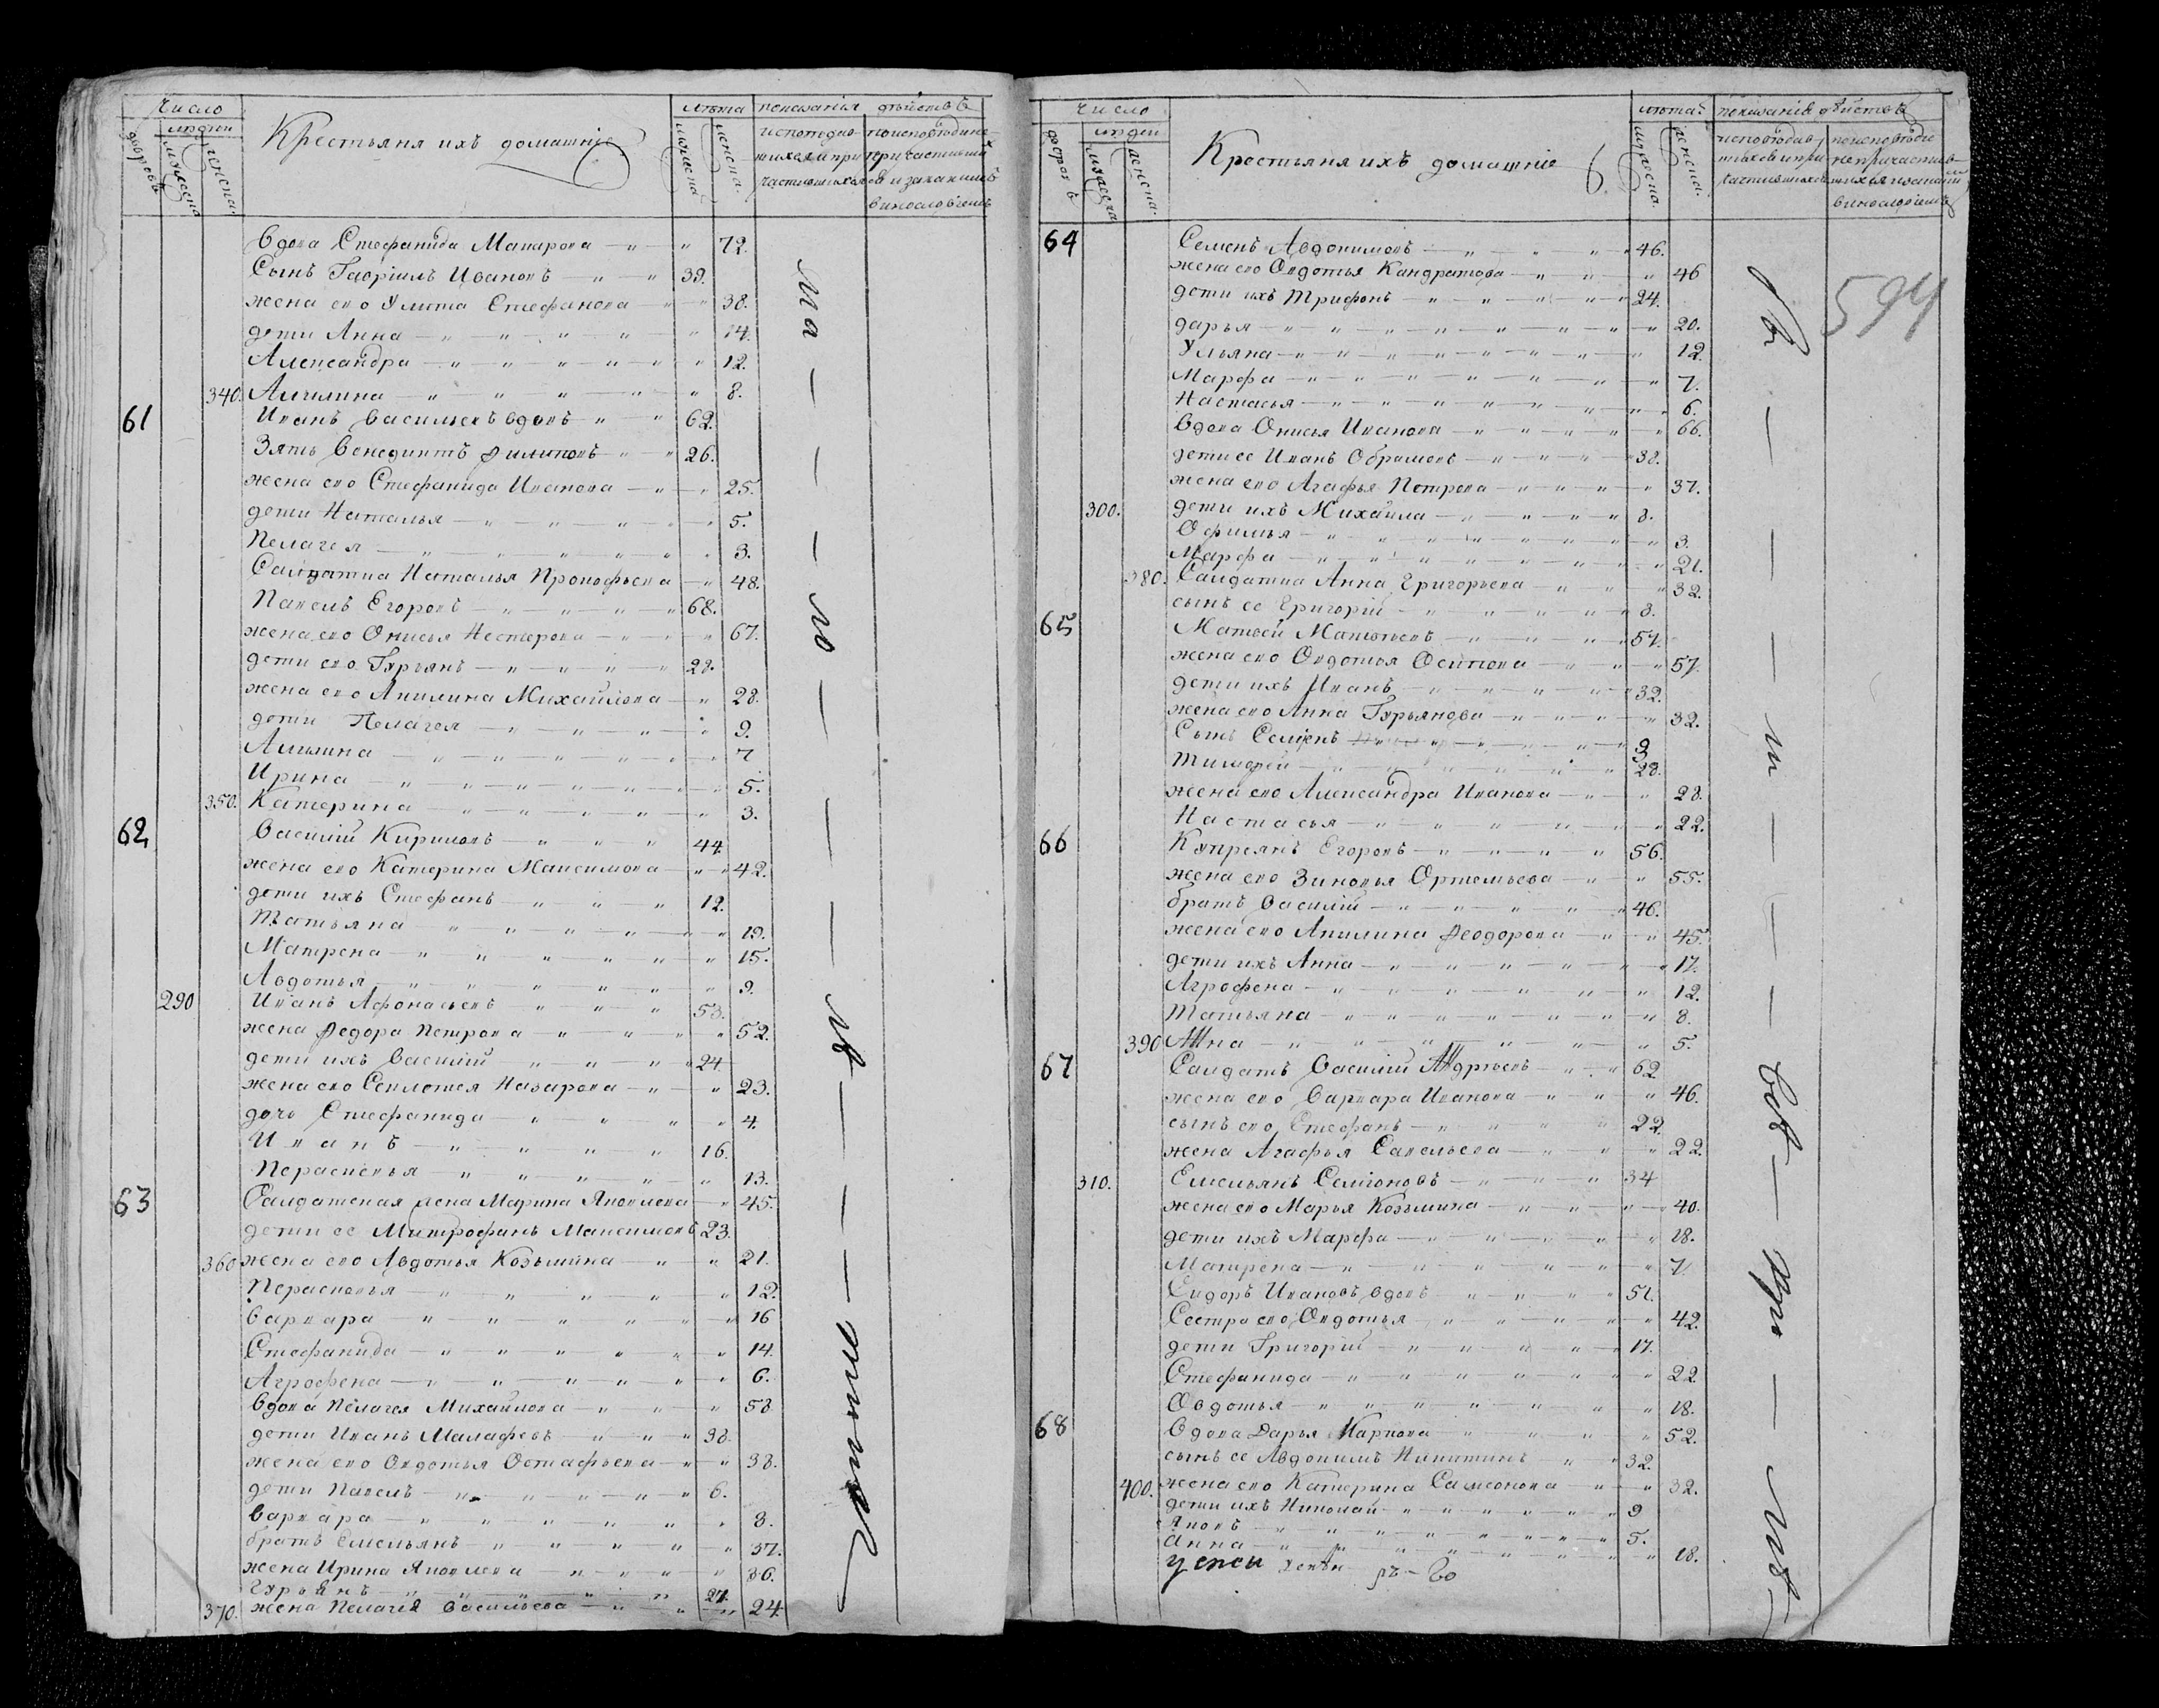 Число
людей
дворовъ
мужеска
женска.
Крестьяня ихъ домашніе
лѣта
мужеска
женска.
показанія дѣйствъ
исповѣдав-
шихся и при
частившихся
неисповѣдав-
ов и за какимъ
винословіемъ
вдова Стефанида Макарова 72.
Сынъ Гавріилъ Ивановъ 39.
жена его Улита Стефанова 38.
дети Анна 14.
Александра 12.
340. Акилина 8.
61 Иванъ Васильевъ вдовъ 62.
Зять Венедиктъ Филиповъ 26.
жена его Стефанида Иванова 25.
дети Наталья 5.
Пелагея 3.
Салдатка Наталья Прокофьева 48.
Павелъ Егоровъ 68.
жена его Онисья Нестерова 67.
дети его Гурьянъ 28.
жена его Акилина Михайлова 28.
дети Пелагея 9.
Акилина 7
Ирина 5.
350. Катерина 3.
62 Василій Кириловъ 44.
жена его Катерина Максимова 42.
дети ихъ Стефанъ 12.
Татьяна 19.
Матрена 15.
Авдотья 9.
290 Иванъ Афонасьевъ 53.
жена Федора Петрова 52.
дети ихъ Василій 24
жена его Секлетея Назарова 23.
дочь Стефанида 4.
Иванъ 16.
Пераскевья 13.
63 Салдатская жена Марина Яковлева 45.
дети ее Митрофанъ Максимовъ 23.
360 жена его Авдотья Козьмина 21.
Перасковья 12.
Варвара 16
Стефанида 14.
Агрофена 6.
вдова Пелагея Михайлова 58
дети Иванъ Малафеевъ 38.
жена его Овдотья Остафьева 38.
дети Павелъ 6.
Варвара 8.
братъ Емельянъ 37.
жена Ирина Яковлева 36.
Гурьянъ 27.
370. жена Пелагея Васильева 24
Число
людей
дворовъ
мужеска
женска.
Крестьяня ихъ домашніе
лѣта
мужеска.
женска.
показаніе дѣйствъ
исповѣдав-
шихся и при
частившихся
594
64 Семенъ Авдокимовъ 46.
жена его Овдотья Кандратова 46
дети ихъ Трифонъ 24.
дарья 20.
Ульяна 12.
Марфа 7.
Настасья 6.
вдова Онисья Иванова 66.
дети ее Иванъ Обрамовъ 38.
жена его Агафья Петрова 37.
300. дети ихъ Михайла 8.
Офимья 3.
Марфа 21.
380. Салдатка Анна Григорьева 32.
сынъ ее Григорій 8.
65 Матвей Матвеевъ 57.
жена его Овдотья Осипова 57.
дети ихъ Иванъ 32.
жена его Анна Гурьянова 32.
Сынъ Семенъ 9
Тимофей 28.
жена его Александра Иванова 28.
Настасья 22.
66 Купреянъ Егоровъ 56.
жена его Зиновья Ортемьева 55.
братъ Василій 46.
жена его Акилина Феодорова 45.
дети ихъ Анна 17.
Агрофена 12.
Татьяна 8.
390 Анна 5.
67 Салдатъ Василій Андреевъ 62
жена его Варвара Иванова 46.
сынъ его Стефанъ 22.
жена Агафья Савельева 22.
310. Емельянъ Семіоновъ 34
жена его Марья Козьмина 40.
дети ихъ Марфа 18.
Матрена 7.
Сидоръ Ивановъ вдовъ 57.
Сестра его Овдотья 42.
дети Григорій 17.
Стефанида 22
Овдотья 18.
68 Вдова Дарья Карпова 52.
сынъ ее Авдокимъ Никитинъ 32.
400. жена его Катерина Самсонова 32.
дети ихъ Николай 9
Яковъ 5.
Анна 18.